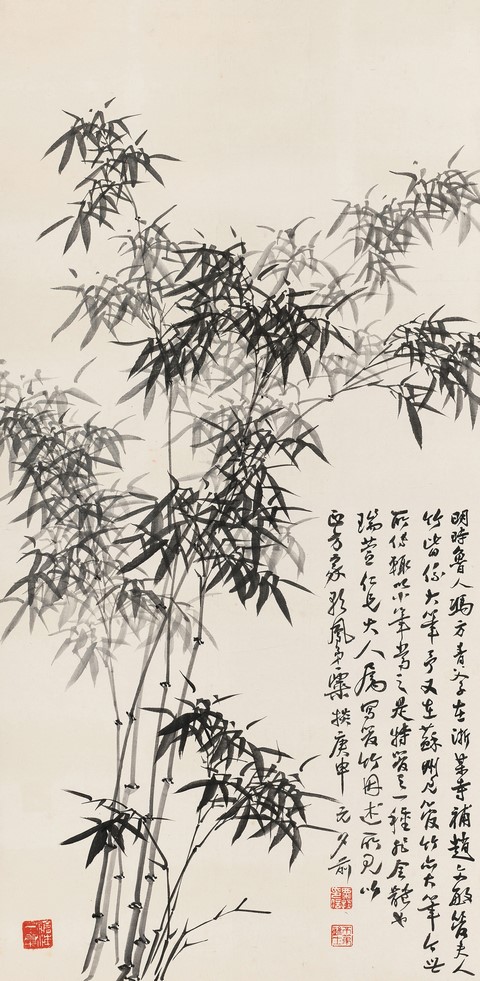 明時魯人馮方青父子在浙某寺補趙文敏管夫人
竹皆作大筆予又在蘇州見管竹亦大筆今世
所作輒以小筆當之是特管之一種非全體也
瑞萱仁兄大人屬寫管竹因述所見以
正方家 鳳弟 庚申元夕前